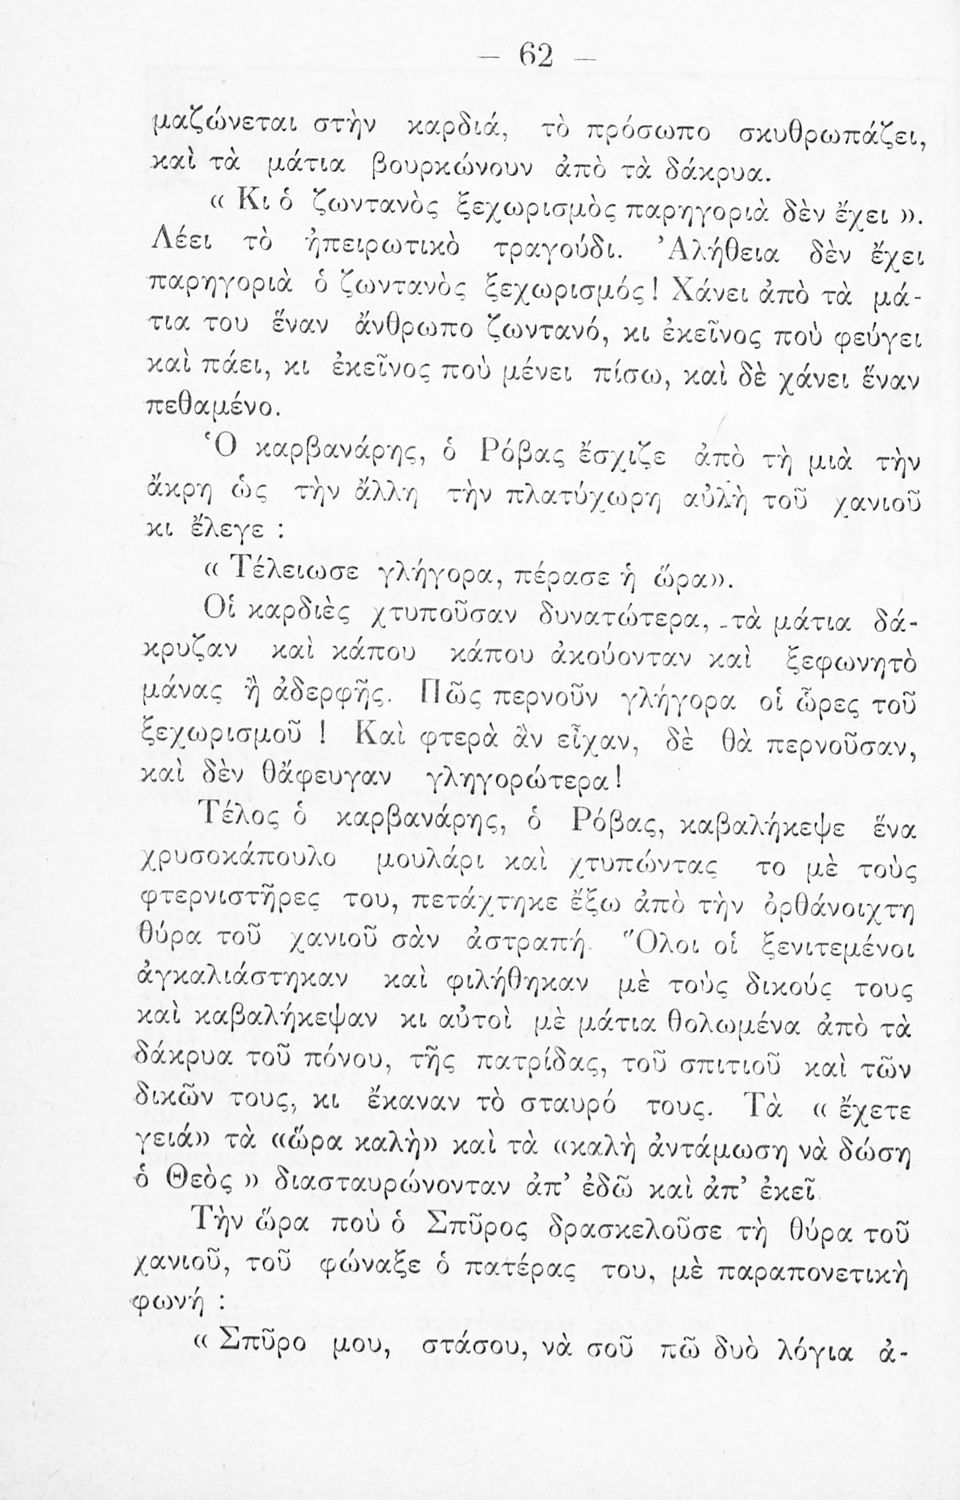 — 62 —
μαζώνεται στὴν καρδιά, τὸ πρόσωπο σκυθρωπάζει,
καὶ τὰ μάτια βουρκώνουν ἀπὸ τὰ δάκρυα.
« Κι ὁ ζωντανὸς ξεχωρισμὸς παρηγοριὰ δὲν ἔχει ».
Λέει τὸ ἠπειρωτικὸ τραγούδι. Ἀλήθεια δὲν ἔχει
παρηγοριὰ ὁ ζωντανὸς ξεχωρισμός! Χάνει ἀπὸ τὰ μά-
τια του ἕναν ἄνθρωπο ζωντανό, κι ἐκεῖνος ποὺ φεύγει
καὶ πάει, κι ἐκεῖνος ποὺ μένει πίσω, καὶ δὲ χάνει ἕναν
πεθαμένο.
Ὁ καρβανάρης, ὁ Ρόβας ἔσχιζε ἀπὸ τὴ μιὰ τὴν
ἄκρη ὡς τὴν ἄλλη τὴν πλατύχωρη αὐλὴ τοῦ χανιοῦ
κι ἔλεγε :
« Τέλειωσε γλήγορα, πέρασε ἡ ὥρα».
Οἱ καρδιὲς χτυποῦσαν δυνατώτερα, τὰ μάτια δά-
κρυζαν καὶ κάπου κάπου ἀκούονταν καὶ ξεφωνητὸ
μάνας ἢ ἀδερφῆς. Πῶς περνοῦν γλήγορα οἱ ὧρες τοῦ
ξεχωρισμοῦ ! Καὶ φτερὰ ἂν εἶχαν, δὲ θὰ περνοῦσαν,
καὶ δὲν θἄφευγαν γληγορώτερα!
Τέλος ὁ καρβανάρης, ὁ Ρόβας, καβαλήκεψε ἕνα
χρυσοκάπουλο μουλάρι καὶ χτυπώντας το μὲ τοὺς
φτερνιστῆρες του, πετάχτηκε ἔξω ἀπὸ τὴν ὀρθάνοιχτη
θύρα τοῦ χανιοῦ σὰν ἀστραπή. Ὅλοι οἱ ξενιτεμένοι
ἀγκαλιάστηκαν καὶ φιλήθηκαν μὲ τοὺς δικούς τους
καὶ καβαλήκεψαν κι αὐτοὶ μὲ μάτια θολωμένα ἀπὸ τὰ
δάκρυα τοῦ πόνου, τῆς πατρίδας, τοῦ σπιτιοῦ καὶ τῶν
δικῶν τους, κι ἔκαναν τὸ σταυρό τους. Τὰ « ἔχετε
γειά» τὰ «ὥρα καλὴ» καὶ τὰ «καλὴ ἀντάμωση νὰ δώση
ὁ Θεὸς » διασταυρώνονταν ἀπ’ ἐδῶ καὶ ἀπ’ ἐκεῖ.
Τὴν ὥρα ποὺ ὁ Σπῦρος δρασκελοῦσε τὴ θύρα τοῦ
χανιοῦ, τοῦ φώναξε ὁ πατέρας του, μὲ παραπονετικὴ
φωνή :
« Σπῦρο μου, στάσου, νὰ σοῦ πῶ δυὸ λόγια ἀ-